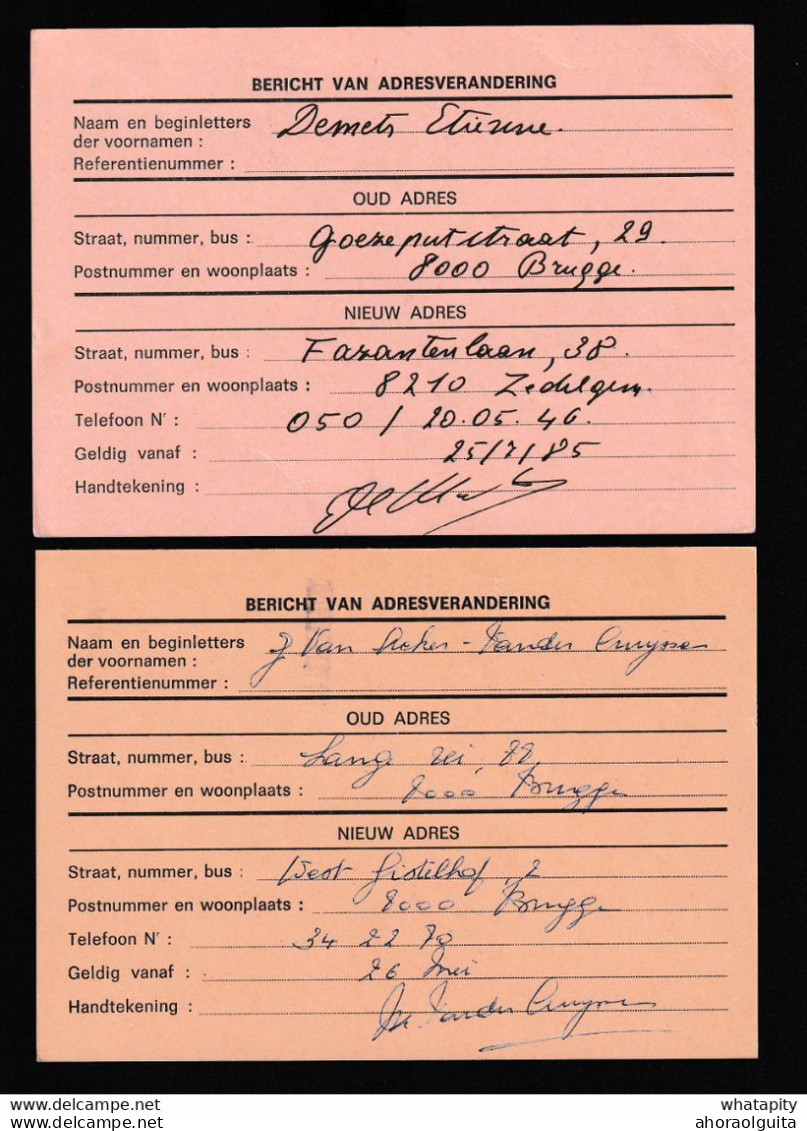 BERICHT VAN ADRESVERANDERING
Naam en beginletters der voornamen : Demets Etienne.
Referentienummer :
OUD ADRES
Straat, nummer, bus : Goezeputstraat, 29.
Postnummer en woonplaats : 8000 Brugge.
NIEUW ADRES
Straat, nummer, bus : Fazantenlaan, 38.
Postnummer en woonplaats : 8210 Zedelgem.
Telefoon Nr : 050 / 20.05.46.
Geldig vanaf : 25/7/85
Handtekening :
BERICHT VAN ADRESVERANDERING
Naam en beginletters der voornamen : J Van - Vander Cruysse
Referentienummer :
OUD ADRES
Straat, nummer, bus : Lange rei,
Postnummer en woonplaats : 8000 Brugge
NIEUW ADRES
Straat, nummer, bus : West Gistelhof, 2
Postnummer en woonplaats : 8000 Brugge
Telefoon Nr : 34 22 70
Geldig vanaf : 26 Mei
Handtekening : Vander Cruysse
Delcampe.net
philalouis
whatapity
ahoraolguita